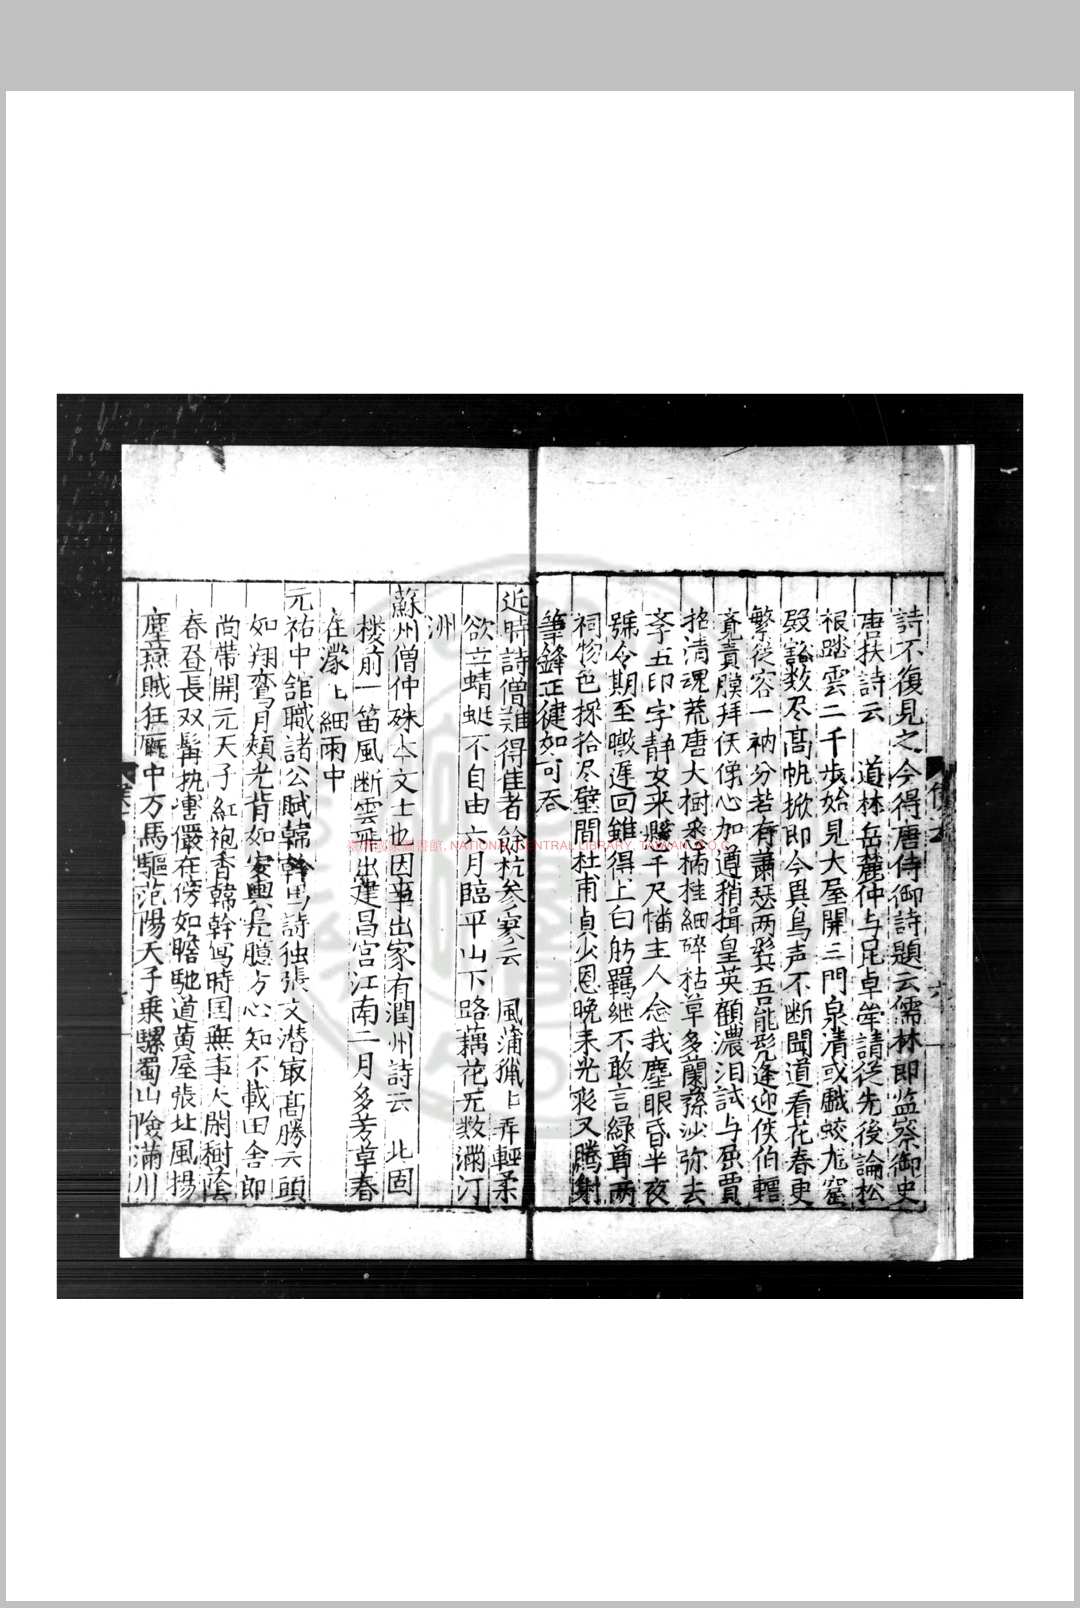 詩不復見之今得唐侍御詩題云儒林郎监察御史
唐扶詩云 道林岳麓仲与昆卓犖請従先後論松
根踏雲二千步始見大屋開三門泉清或戲蛟龙窟
殿豁数尽髙帆掀即今異鳥声不断聞道看花春更
繁従容一衲分若有蕭瑟两鬓吾能髠逢迎侯伯轉
覺貴膜拜佛像心加尊稍揖皇英顴濃泪試与屈賈
招清魂荒唐大樹悉楠桂細碎枯草多蘭蓀沙弥去
孝五印字静女来懸千尺幡主人念我塵眼昏半夜
號令期至暾遲回雖得上白舫羈絏不敢言綠尊两
祠物色採拾尽壁間杜甫真少恩晚来光彩又騰射
筆鋒正健如可吞
近時詩僧難得佳者餘杭参寥云 風蒲猎上弄輕柔
欲立蜻蜓不自由六月臨平山下路藕花无数滿汀
洲
蘇州僧仲殊本文士也因事出家有潤州詩云 北固
楼前一笛風断雲飛出建昌宫江南二月多芳草春
在濛上細雨中
元祐中舘職諸公賦韓幹馬詩独張文潜最髙勝云頭
如翔鸞月頰光背如安輿鳧臆方心知不載田舍郎
尚帶開元天子紅袍香韓幹写時国無事天閑樹蔭
春昼長双髯执轡儼在傍如瞻馳道黃屋張北風揚
塵燕賊狂厩中万馬驅范陽天子乗騾蜀山險滿川
國家圖書館, NATIONAL CENTRAL LIBRARY, TAIWAN, R.O.C